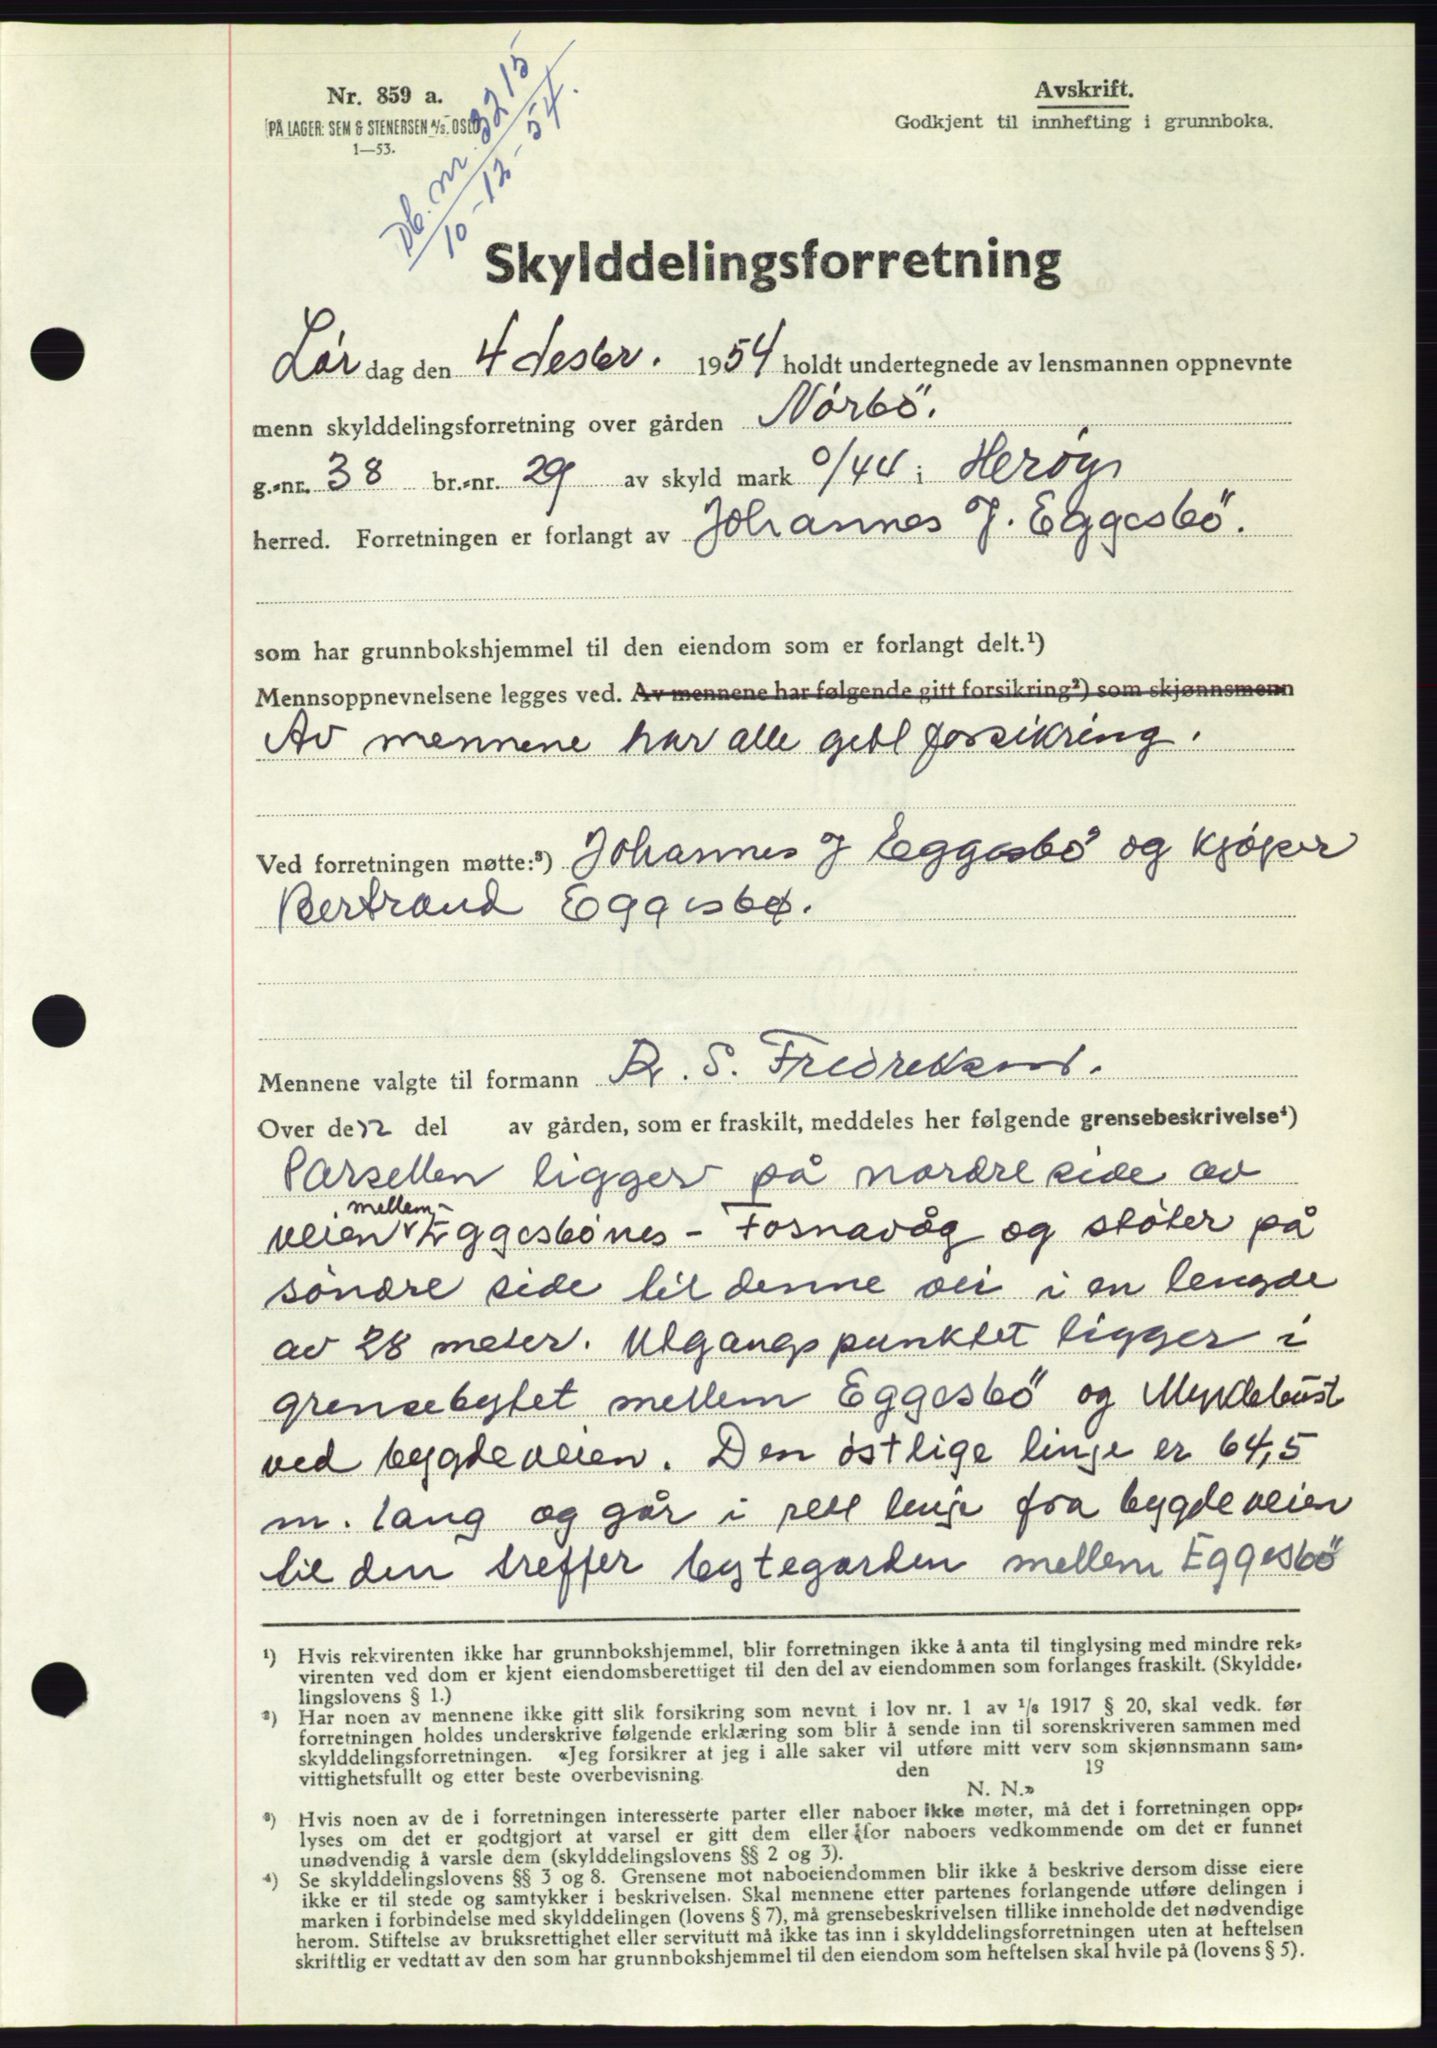 Nr. 859 a.
PÅ LAGER: SEM & STENERSEN A/S. OSLO
1—53.
Db. nr. 3215
10-12-54.
Avskrift.
Godkjent til innhefting i grunnboka.
Skylddelingsforretning
Lør dag den 4 desbr. 1954 holdt undertegnede av lensmannen oppnevnte
menn skylddelingsforretning over gården Nórbö.
g.-nr. 38 br.-nr. 29 av skyld mark 0/44 i Herøy
herred. Forretningen er forlangt av Johannes J. Eggesbö.
som har grunnbokshjemmel til den eiendom som er forlangt delt.¹)
Mennsoppnevnelsene legges ved. Av mennene har følgende gitt forsikring²) som skjønnsmenn
Av mennene har alle gitt forsikring.
Ved forretningen møtte:³) Johannes J Eggesbö og kjóper
Bertrand Eggesbø.
Mennene valgte til formann R. S. Fredreksen.
Over den del av gården, som er fraskilt, meddeles her følgende grensebeskrivelse⁴)
Parsellen ligger på nordre side av
veien mellem Eggesbónes - Fosnavåg og stóter på
sóndre side til denne vei i en lengde
av 28 meter. Utgangspunktet ligger i
grensebytet mellem Eggesbö og Myklebust
ved bygdeveien. Den óstlige linje er 64,5
m. lang og går i rett linje fra bygdeveien
til den treffer bytegarden mellem Eggesbö
¹) Hvis rekvirenten ikke har grunnbokshjemmel, blir forretningen ikke å anta til tinglysing med mindre rek-
virenten ved dom er kjent eiendomsberettiget til den del av eiendommen som forlanges fraskilt. (Skyldde-
lingslovens § 1.)
²) Har noen av mennene ikke gitt slik forsikring som nevnt i lov nr. 1 av 1/6 1917 § 20, skal vedk. før
forretningen holdes underskrive følgende erklæring som blir å sende inn til sorenskriveren sammen med
skylddelingsforretningen. «Jeg forsikrer at jeg i alle saker vil utføre mitt verv som skjønnsmann sam-
vittighetsfullt og etter beste overbevisning. den 19
N. N.»
³) Hvis noen av de i forretningen interesserte parter eller naboer ikke møter, må det i forretningen opp-
lyses om det er godtgjort at varsel er gitt dem eller for naboers vedkommende om det er funnet
unødvendig å varsle dem (skylddelingslovens §§ 2 og 3).
⁴) Se skylddelingslovens §§ 3 og 8. Grensene mot naboeiendommen blir ikke å beskrive dersom disse eiere
ikke er til stede og samtykker i beskrivelsen. Skal mennene etter partenes forlangende utføre delingen i
marken i forbindelse med skylddelingen (lovens § 7), må grensebeskrivelsen tillike inneholde det nødvendige
herom. Stiftelse av bruksrettighet eller servitutt må ikke tas inn i skylddelingsforretningen uten at heftelsen
skriftlig er vedtatt av den som har grunnbokshjemmel til den eiendom som heftelsen skal hvile på (lovens § 5).